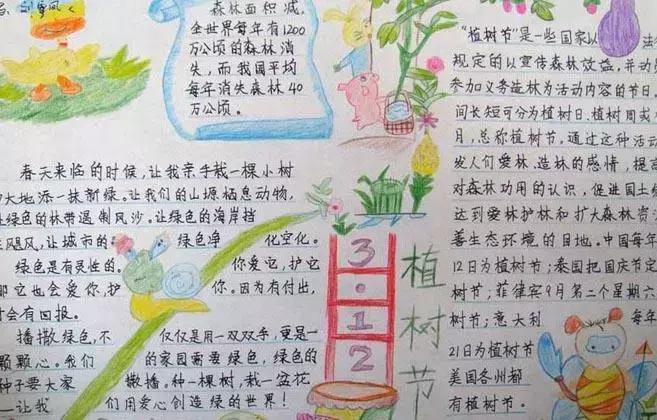 森林面积减
全世界每年有1200
万公顷的森林消
失，而我国平均
每年消失森林40
万公顷。
春天来临的时候，让我亲手栽一棵小树
大地添一抹新绿。让我们的山塬栖息动物，
绿色的林带遏制风沙。让绿色的海岸挡
飓风，让城市的绿色净化空化。
绿色是有灵性的。你爱它，护它
那它也会爱你，护你。因为有付出，
会有回报。
播撒绿色，不仅仅是用一双双手，更是一
颗颗心。我们的家园需要绿色，绿色的
种子要大家撒播。种一棵树，栽一盆花
一让我们用爱心创造绿的世界！
3·12
植树节
"植树节"是一些国家以法
规定的以宣传森林效益，并动
参加义务造林为活动内容的节日。
间长短可分为植树日、植树周或
月，总称植树节。通过这种活动
发人们爱林、造林的感情，提高
对森林功用的认识，促进国土
达到爱林护林和扩大森林资
善生态环境的目地。中国每年
12日为植树节；泰国把国庆节定
树节，菲律宾9月第二个星期六
树节；意大利每年
21日为植树节
美国各州都
有植树节。